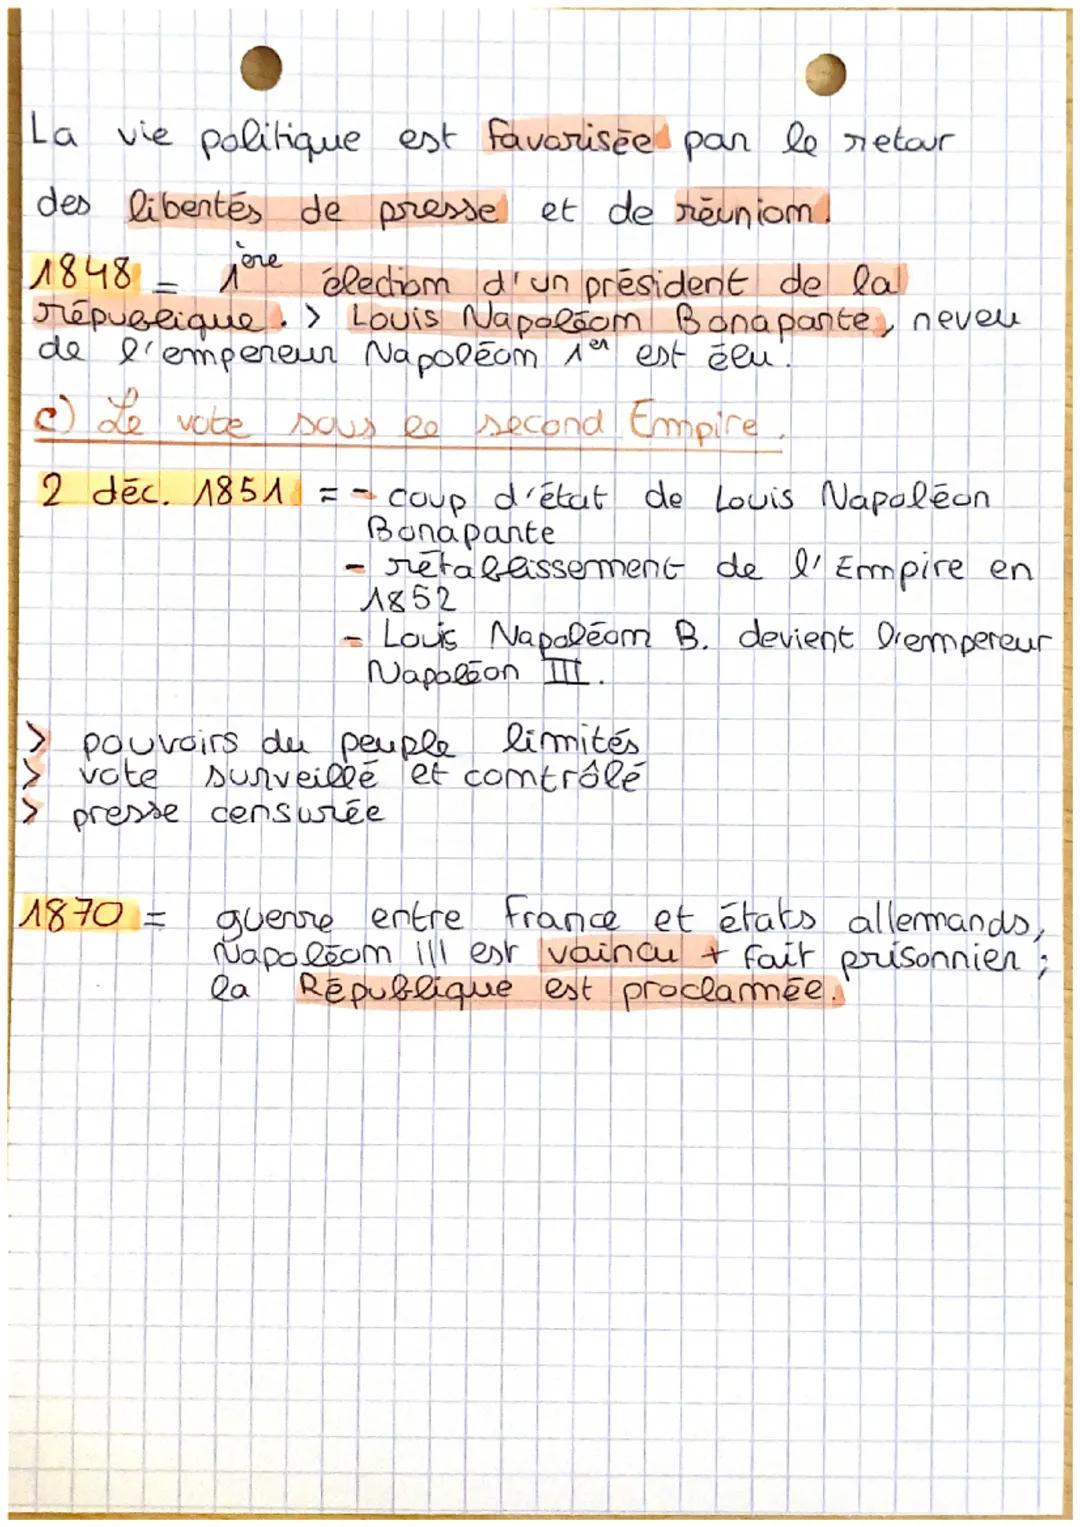 La vie politique est favorisée par le retour
des libertés de presse et de réunion.
1848 = 1ère élection d'un président de la
république. > Louis Napoléon Bonaparte, neveu
de l'empereur Napoléon 1er est élu.
c) Le vote sous le second Empire.
2 déc. 1851 = - coup d'état de Louis Napoléon
Bonaparte
- rétablissement de l'Empire en
1852
- Louis Napoléon B. devient l'empereur
Napoléon III.
> pouvoirs du peuple limités
> vote surveillé et contrôlé
> presse censurée
1870 = guerre entre France et états allemands,
Napoléon III est vaincu + fait prisonnier ;
la République est proclamée.